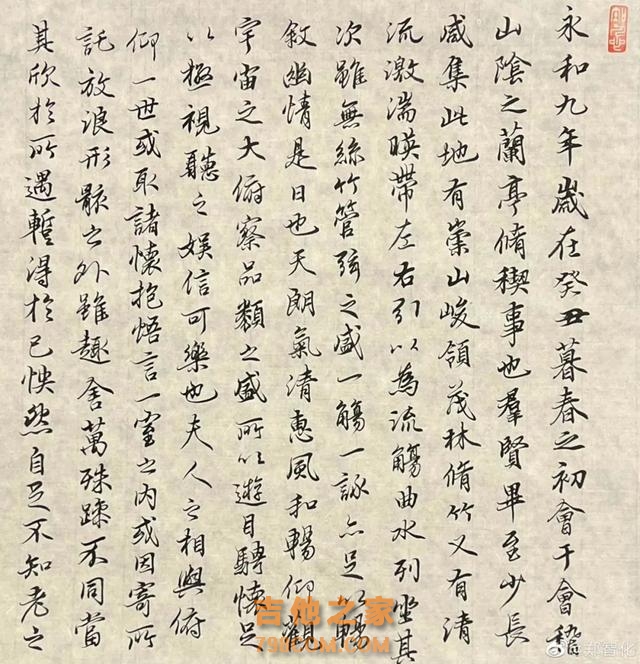 永和九年歲在癸丑暮春之初會于會稽
山陰之蘭亭脩稧事也羣賢畢至少長
咸集此地有崇山峻領茂林脩竹又有清
流激湍暎帶左右引以為流觴曲水列坐其
次雖無絲竹管弦之盛一觴一詠亦足以暢
敘幽情是日也天朗氣清惠風和暢仰觀
宇宙之大俯察品類之盛所以遊目騁懷足
以極視聽之娛信可樂也夫人之相與俯
仰一世或取諸懷抱悟言一室之內或因寄所
託放浪形骸之外雖趣舍萬殊躁不同當
其欣於所遇蹔得於己怏然自足不知老之
吉他之家
@郑智化